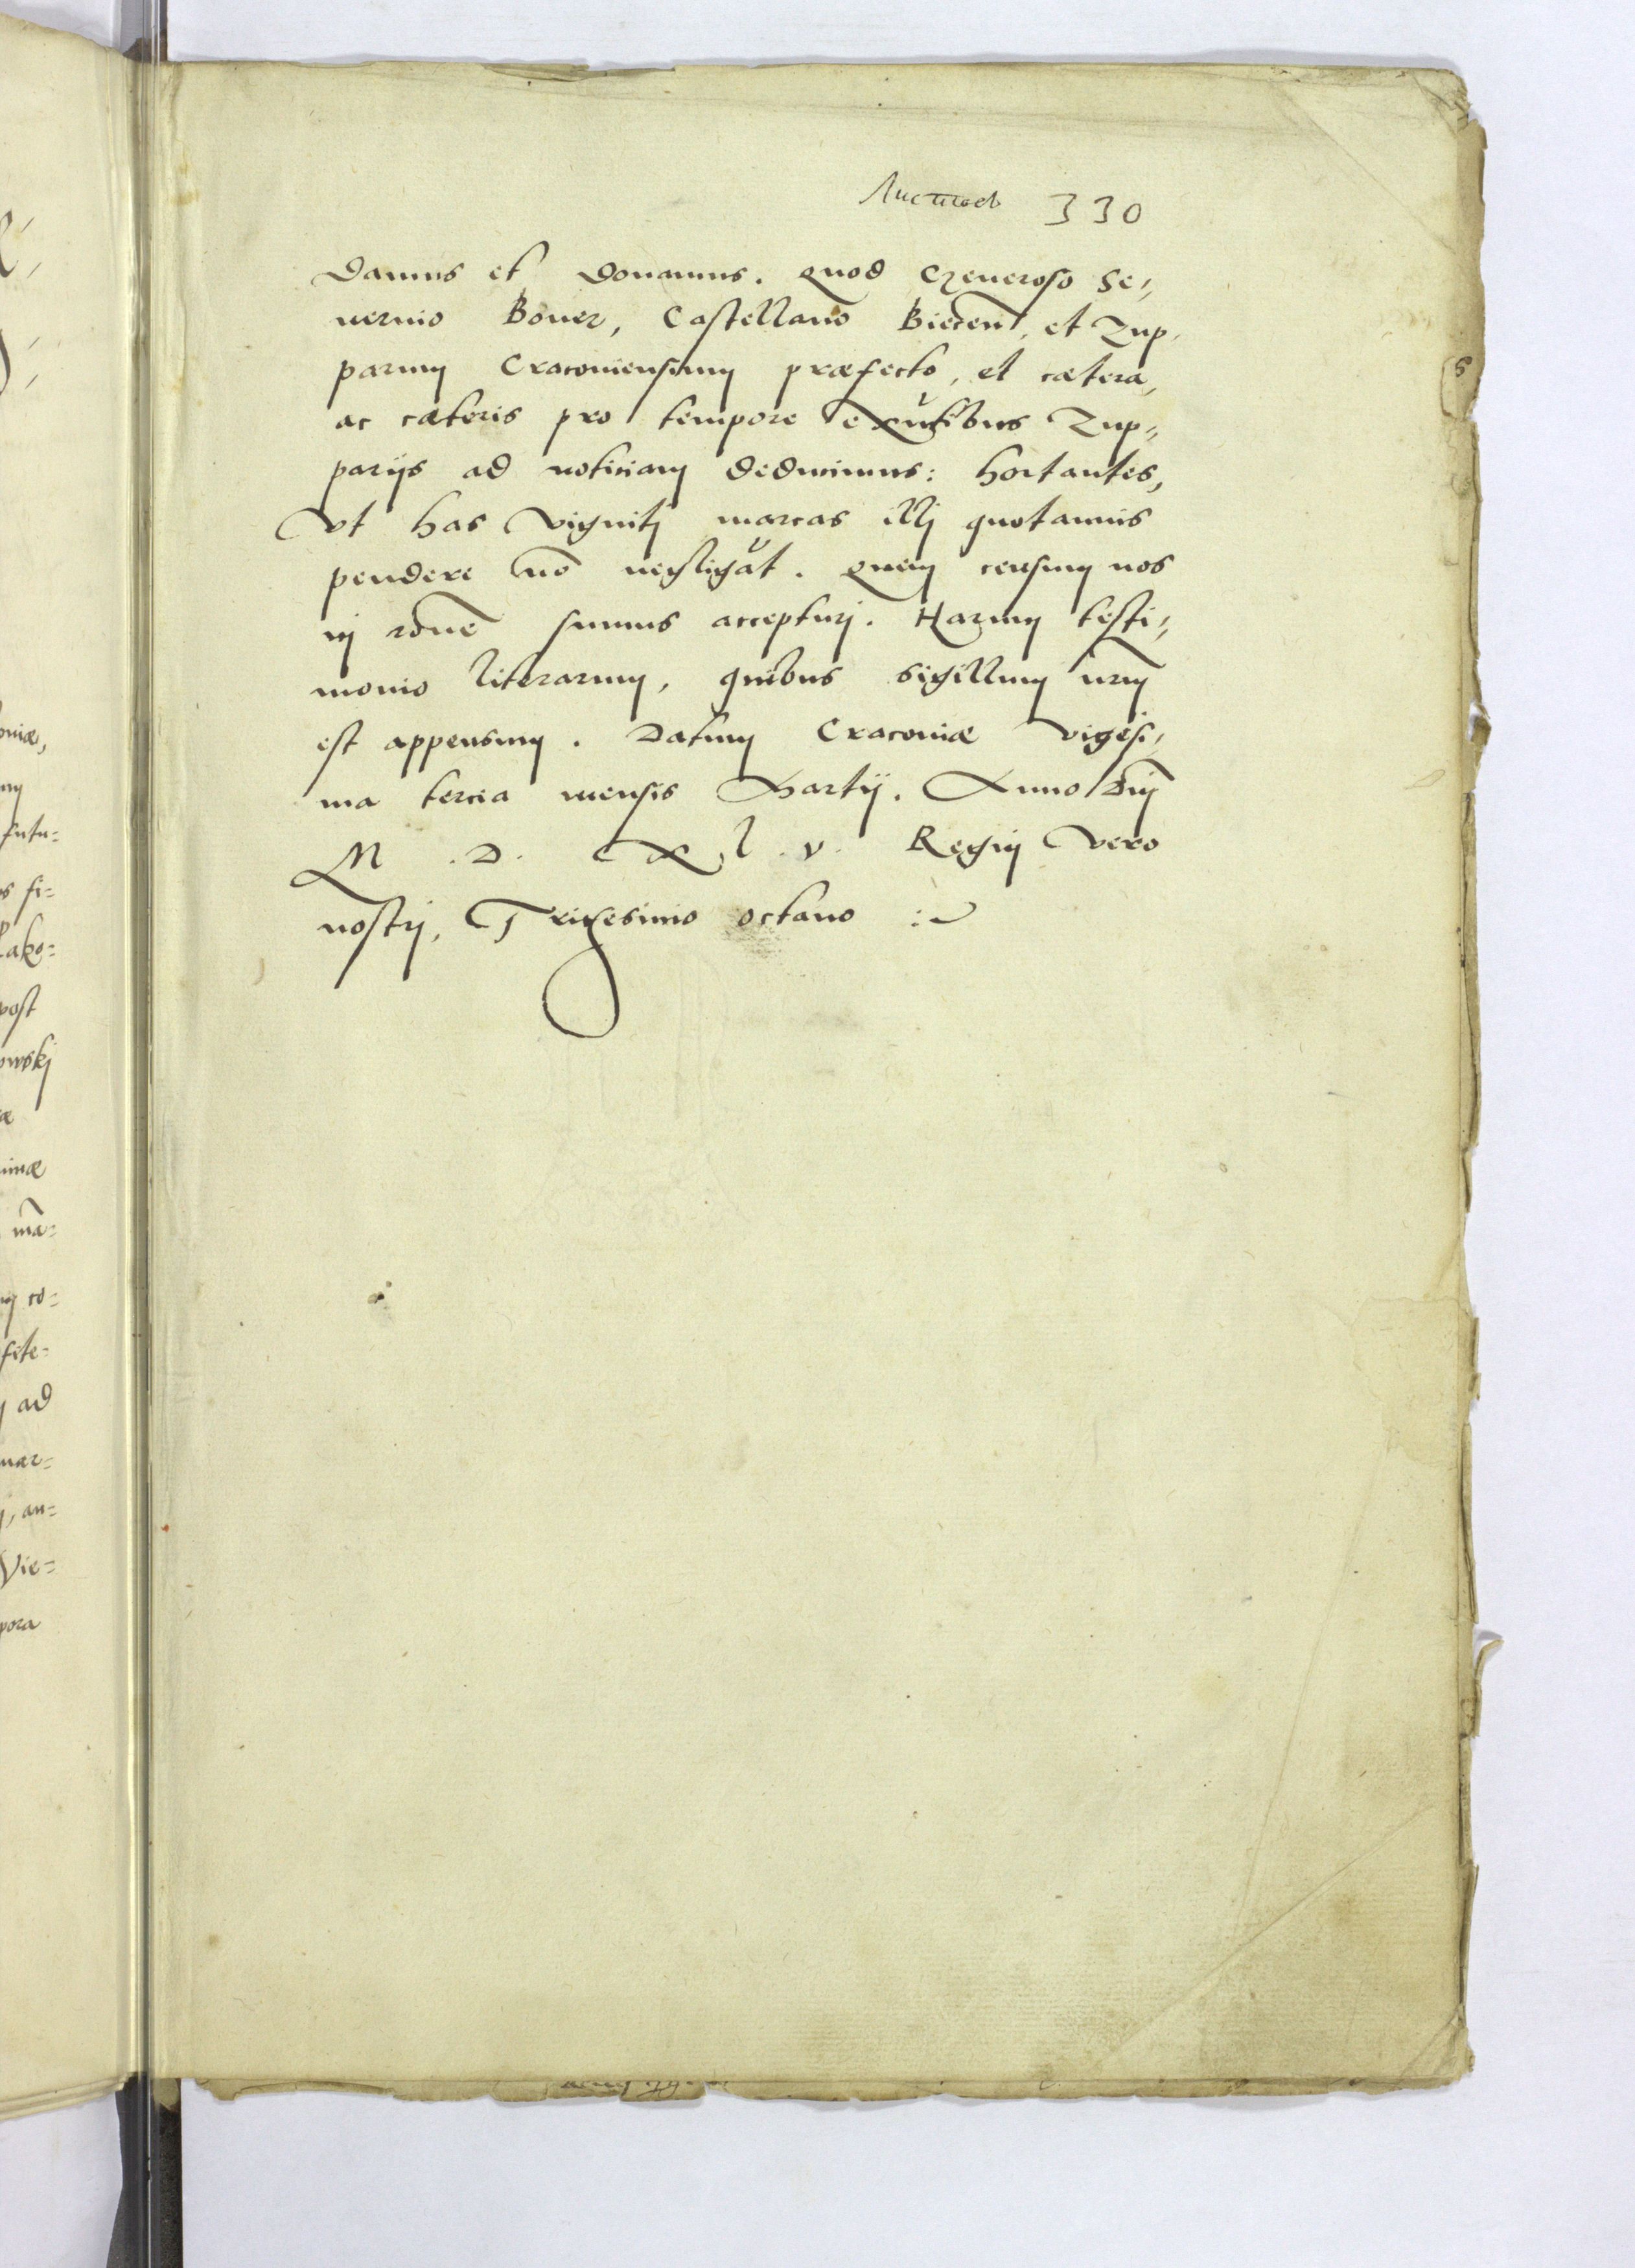 Листов 330
damus et donamus. Quod Generoso Se,,
uerino Boner, Castellano Biecen̄, et Zup,,
parum Cracouiensium præfecto, et cætera,
ac cæteris pro tempore existibus Zup,,
parijs ad noticiam deducimus: hortantes,
Vt has viginti marcas illj quotannis
pendere nō negligāt. Quem censum nos
in rōnē sumus accepturj. Harum testi,,
monio literarum, quibus sigillum nrm̄
est appensum. Datum Cracouiæ vigesi,,
ma tercia mensis Martij. Anno Dnj̄
M. D. x l. v. Regnj vero
nostrj, Trigesimo octauo :~
oniæ,
futu=
s fi=
ako=
post
owskj
mā=
co=
fite=
ad
mar=
, an=
Vie=
pora